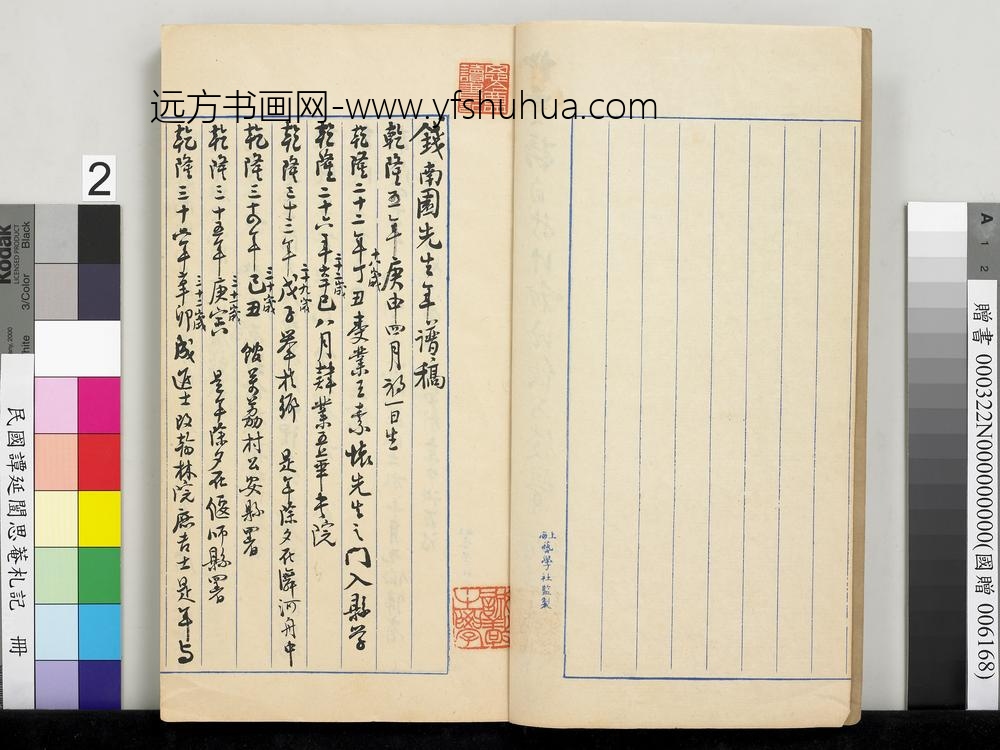 远方书画网-www.yfshuhua.com
錢南園先生年譜稿
乾隆五年庚申四月初一日生
十八歲
乾隆二十二年丁丑受業王素懷先生之門入縣學
二十二歲
乾隆二十六年辛巳八月肄業五華書院
二十九歲
乾隆三十三年戊子舉於鄉 是年除夕在漷河舟中
三十歲
乾隆三十四年己丑 館 荔村公安縣署
三十一歲
乾隆三十五年庚寅 是年除夕在偃師縣署
三十二歲
乾隆三十六年辛卯成進士改翰林院庶吉士是年與
上海
藝學社監製
2
Kodak
LICENSED PRODUCT
Black
3/Color
White
民國譚延闓思菴札記 冊
A 1 2
贈書 000322N000000000(國贈 006168)